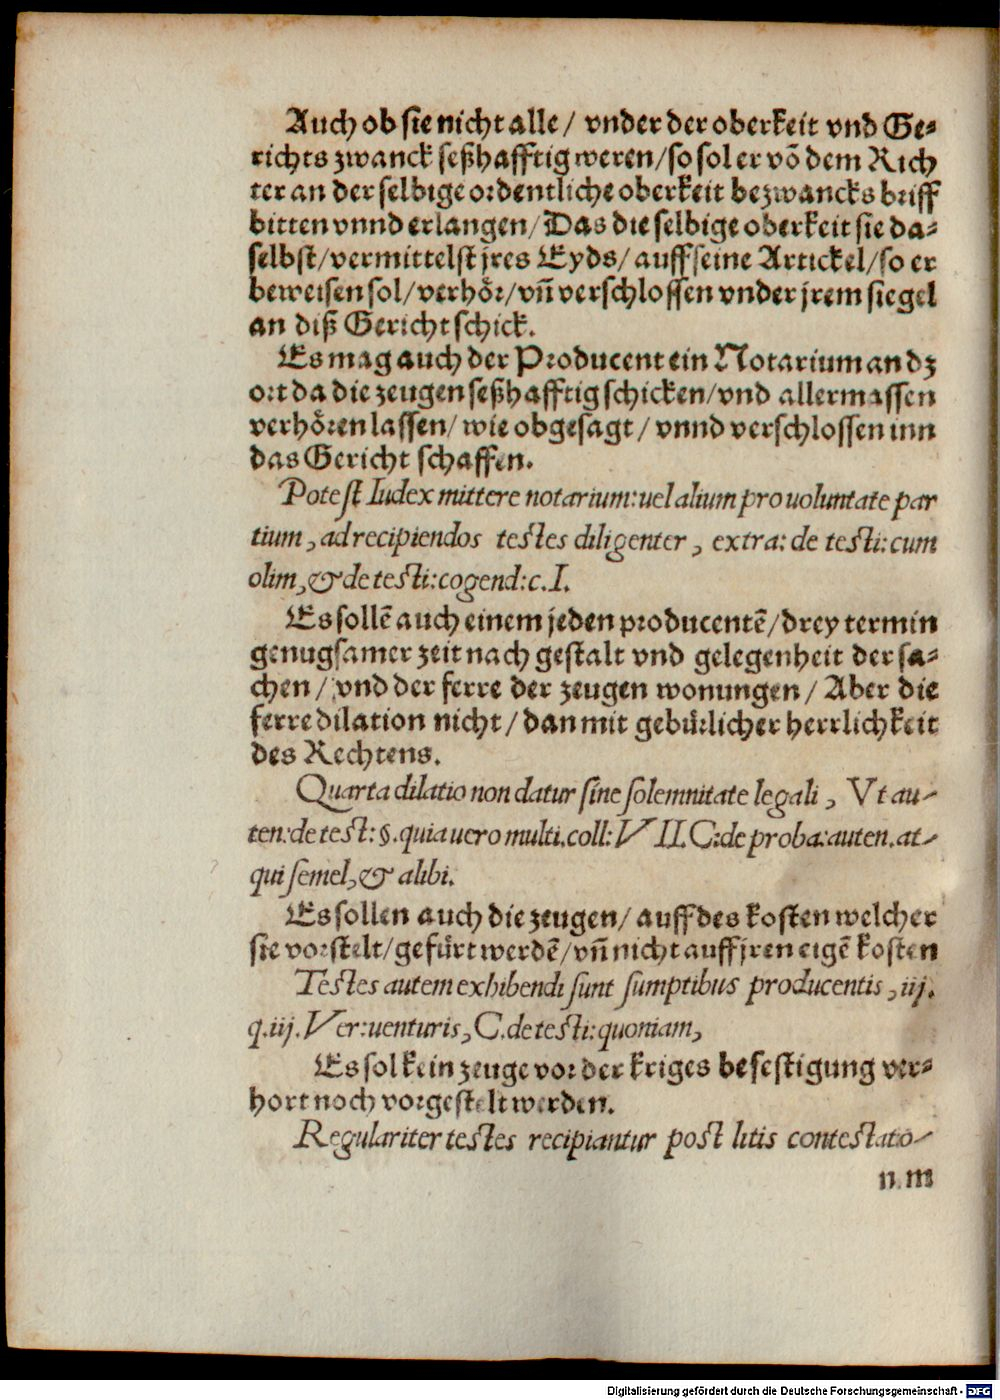 Auch ob sie nicht alle / vnder der oberkeit vnd Ge-
richts zwanck seßhafftig weren / so sol er võ dem Rich
ter an der selbige ordentliche oberkeit bezwancks briff
bitten vnnd erlangen / Das die selbige oberkeit sie da-
selbst / vermittelst jres Eyds / auff seine Artickel / so er
beweisen sol / verhör / vñ verschlossen vnder jrem siegel
an diß Gericht schick.
Es mag auch der Producent ein Notarium an dz
ort da die zeugen seßhafftig schicken / vnd allermassen
verhören lassen / wie obgesagt / vnnd verschlossen inn
das Gericht schaffen.
Potest Iudex mittere notarium: uel alium pro uoluntate par
tium, ad recipiendos testes diligenter, extra: de testi: cum
olim, & de testi: cogend: c. I.
Es sollẽ auch einem jeden producentẽ / drey termin
genugsamer zeit nach gestalt vnd gelegenheit der sa-
chen / vnd der ferre der zeugen wonungen / Aber die
ferre dilation nicht / dan mit gebürlicher herrlichkeit
des Rechtens.
Quarta dilatio non datur sine solemnitate legali, Vt au-
ten: de test: §. quia uero multi. coll: VII. C: de proba: auten. at-
qui semel, & alibi.
Es sollen auch die zeugen / auff des kosten welcher
sie vorstelt / gefürt werdẽ / vñ nicht auff jren eigẽ kosten
Testes autem exhibendi sunt sumptibus producentis, iij.
q. iij. Ver: uenturis, C. de testi: quoniam,
Es sol kein zeuge vor der kriges befestigung ver-
hort noch vorgestelt werden.
Regulariter testes recipiantur post litis contestatio-
n. m
Digitalisierung gefördert durch die Deutsche Forschungsgemeinschaft - DFG